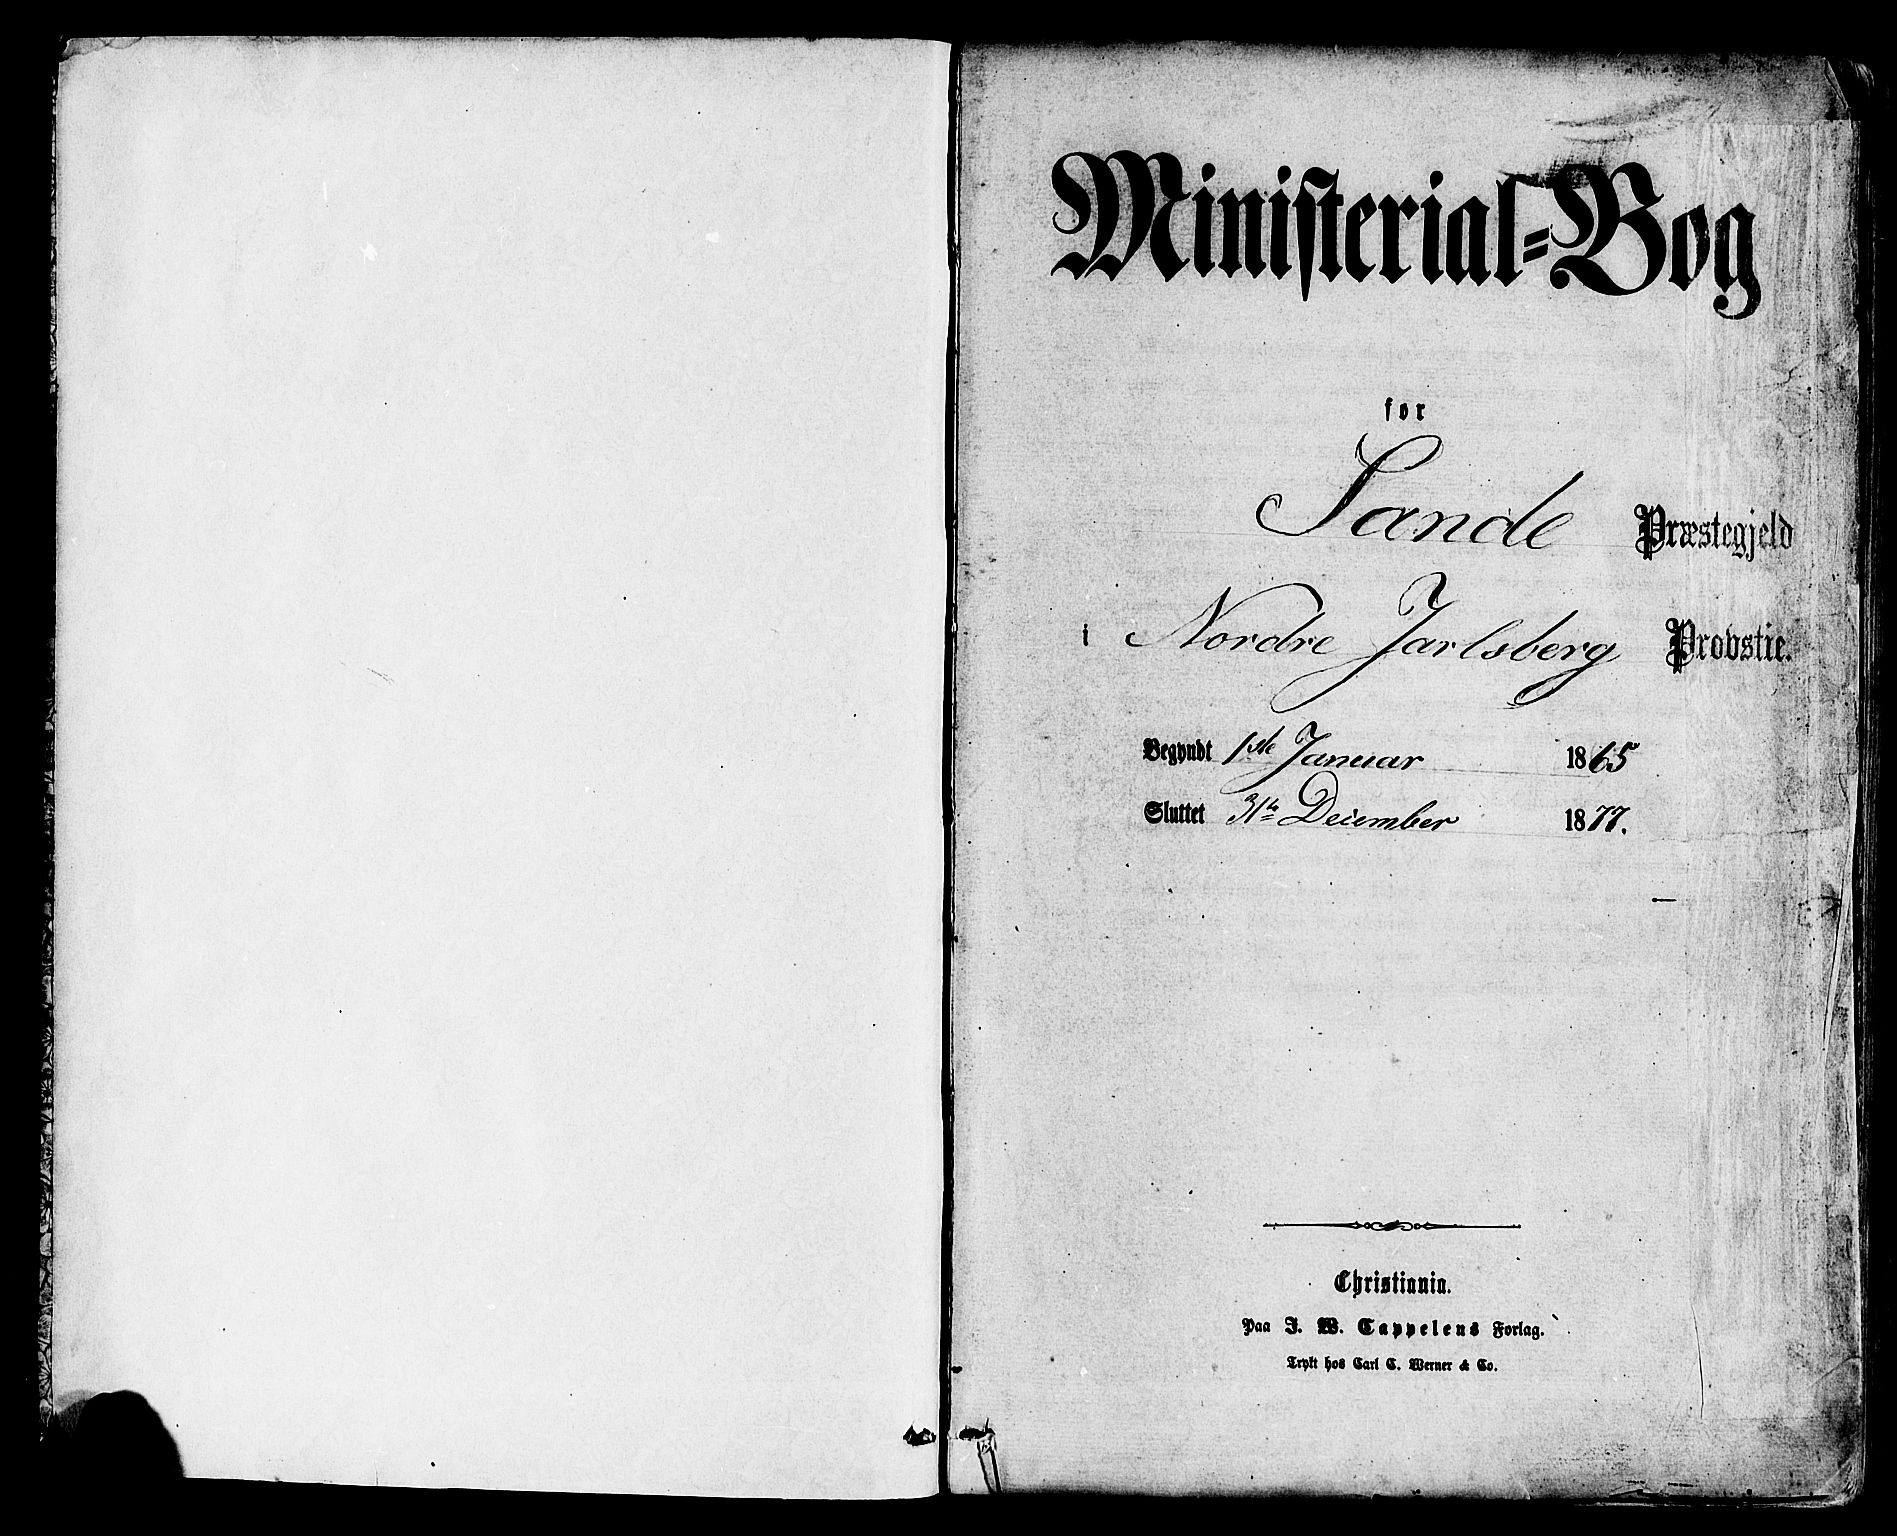 Ministerial-Bog
for
Sande Præstegjeld
i Nordre Jarlsberg Provstie.
Begyndt 1ste Januar 1865
Sluttet 31te December 1877.
Christiania.
Paa J. W. Cappelens Forlag.
Trykt hos Carl C. Werner & Co.